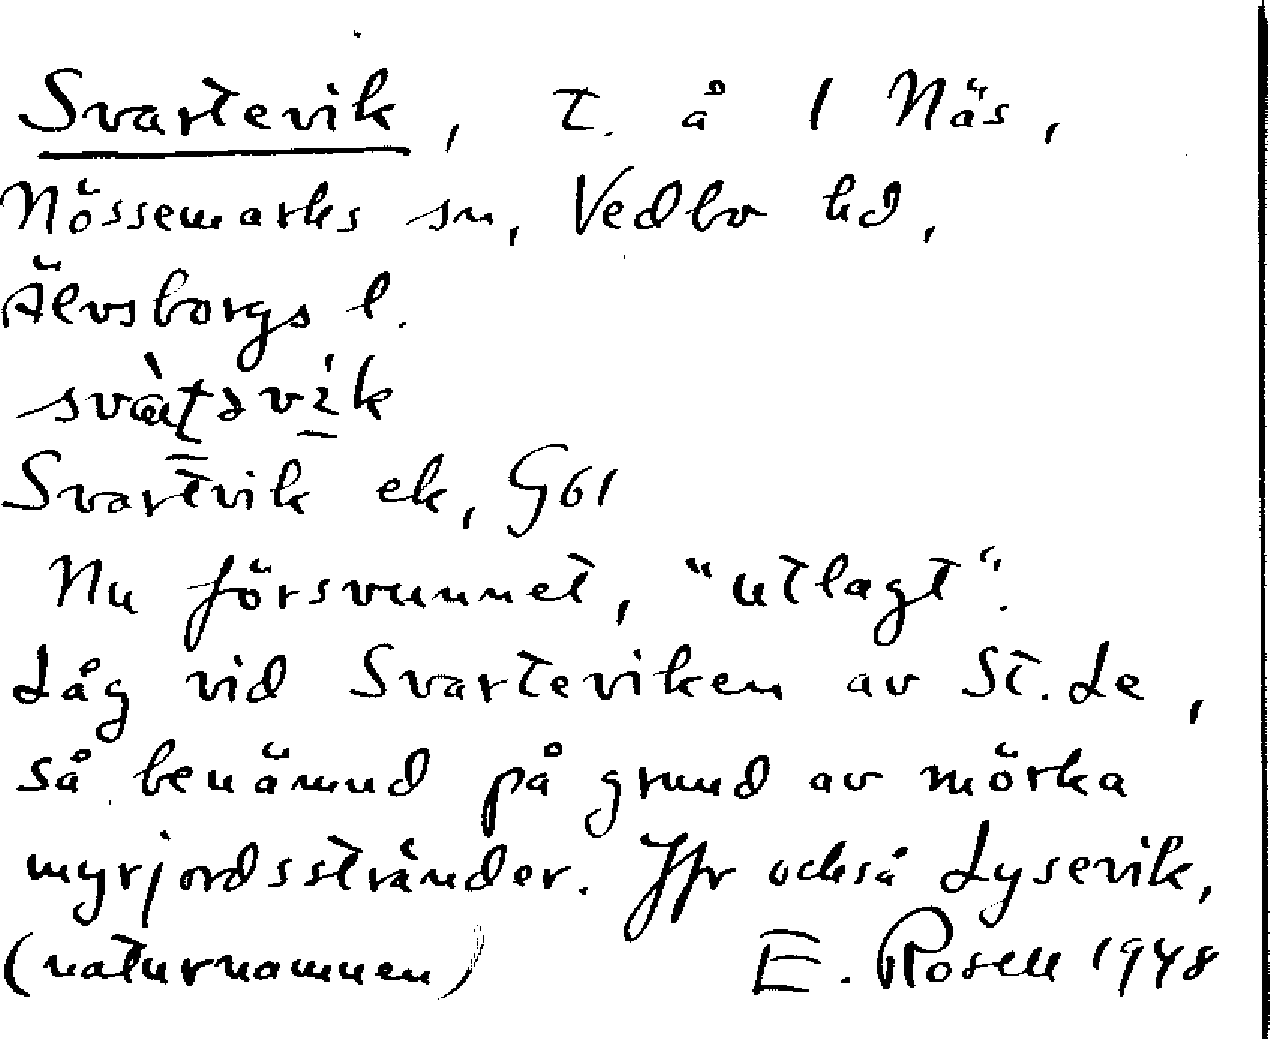 Svartevik, t. å 1 Näs,
Nössemarks sn, Vedbo hd,
Älvsborgs l.
Svartvik ek, G61
Nu försvunnet, "utlagt".
Låg vid Svarteviken av St. Le,
så benämnd på grund av mörka
myrjordsstränder. Jfr också Lysevik,
(naturnamnen) E. Rosell 1948